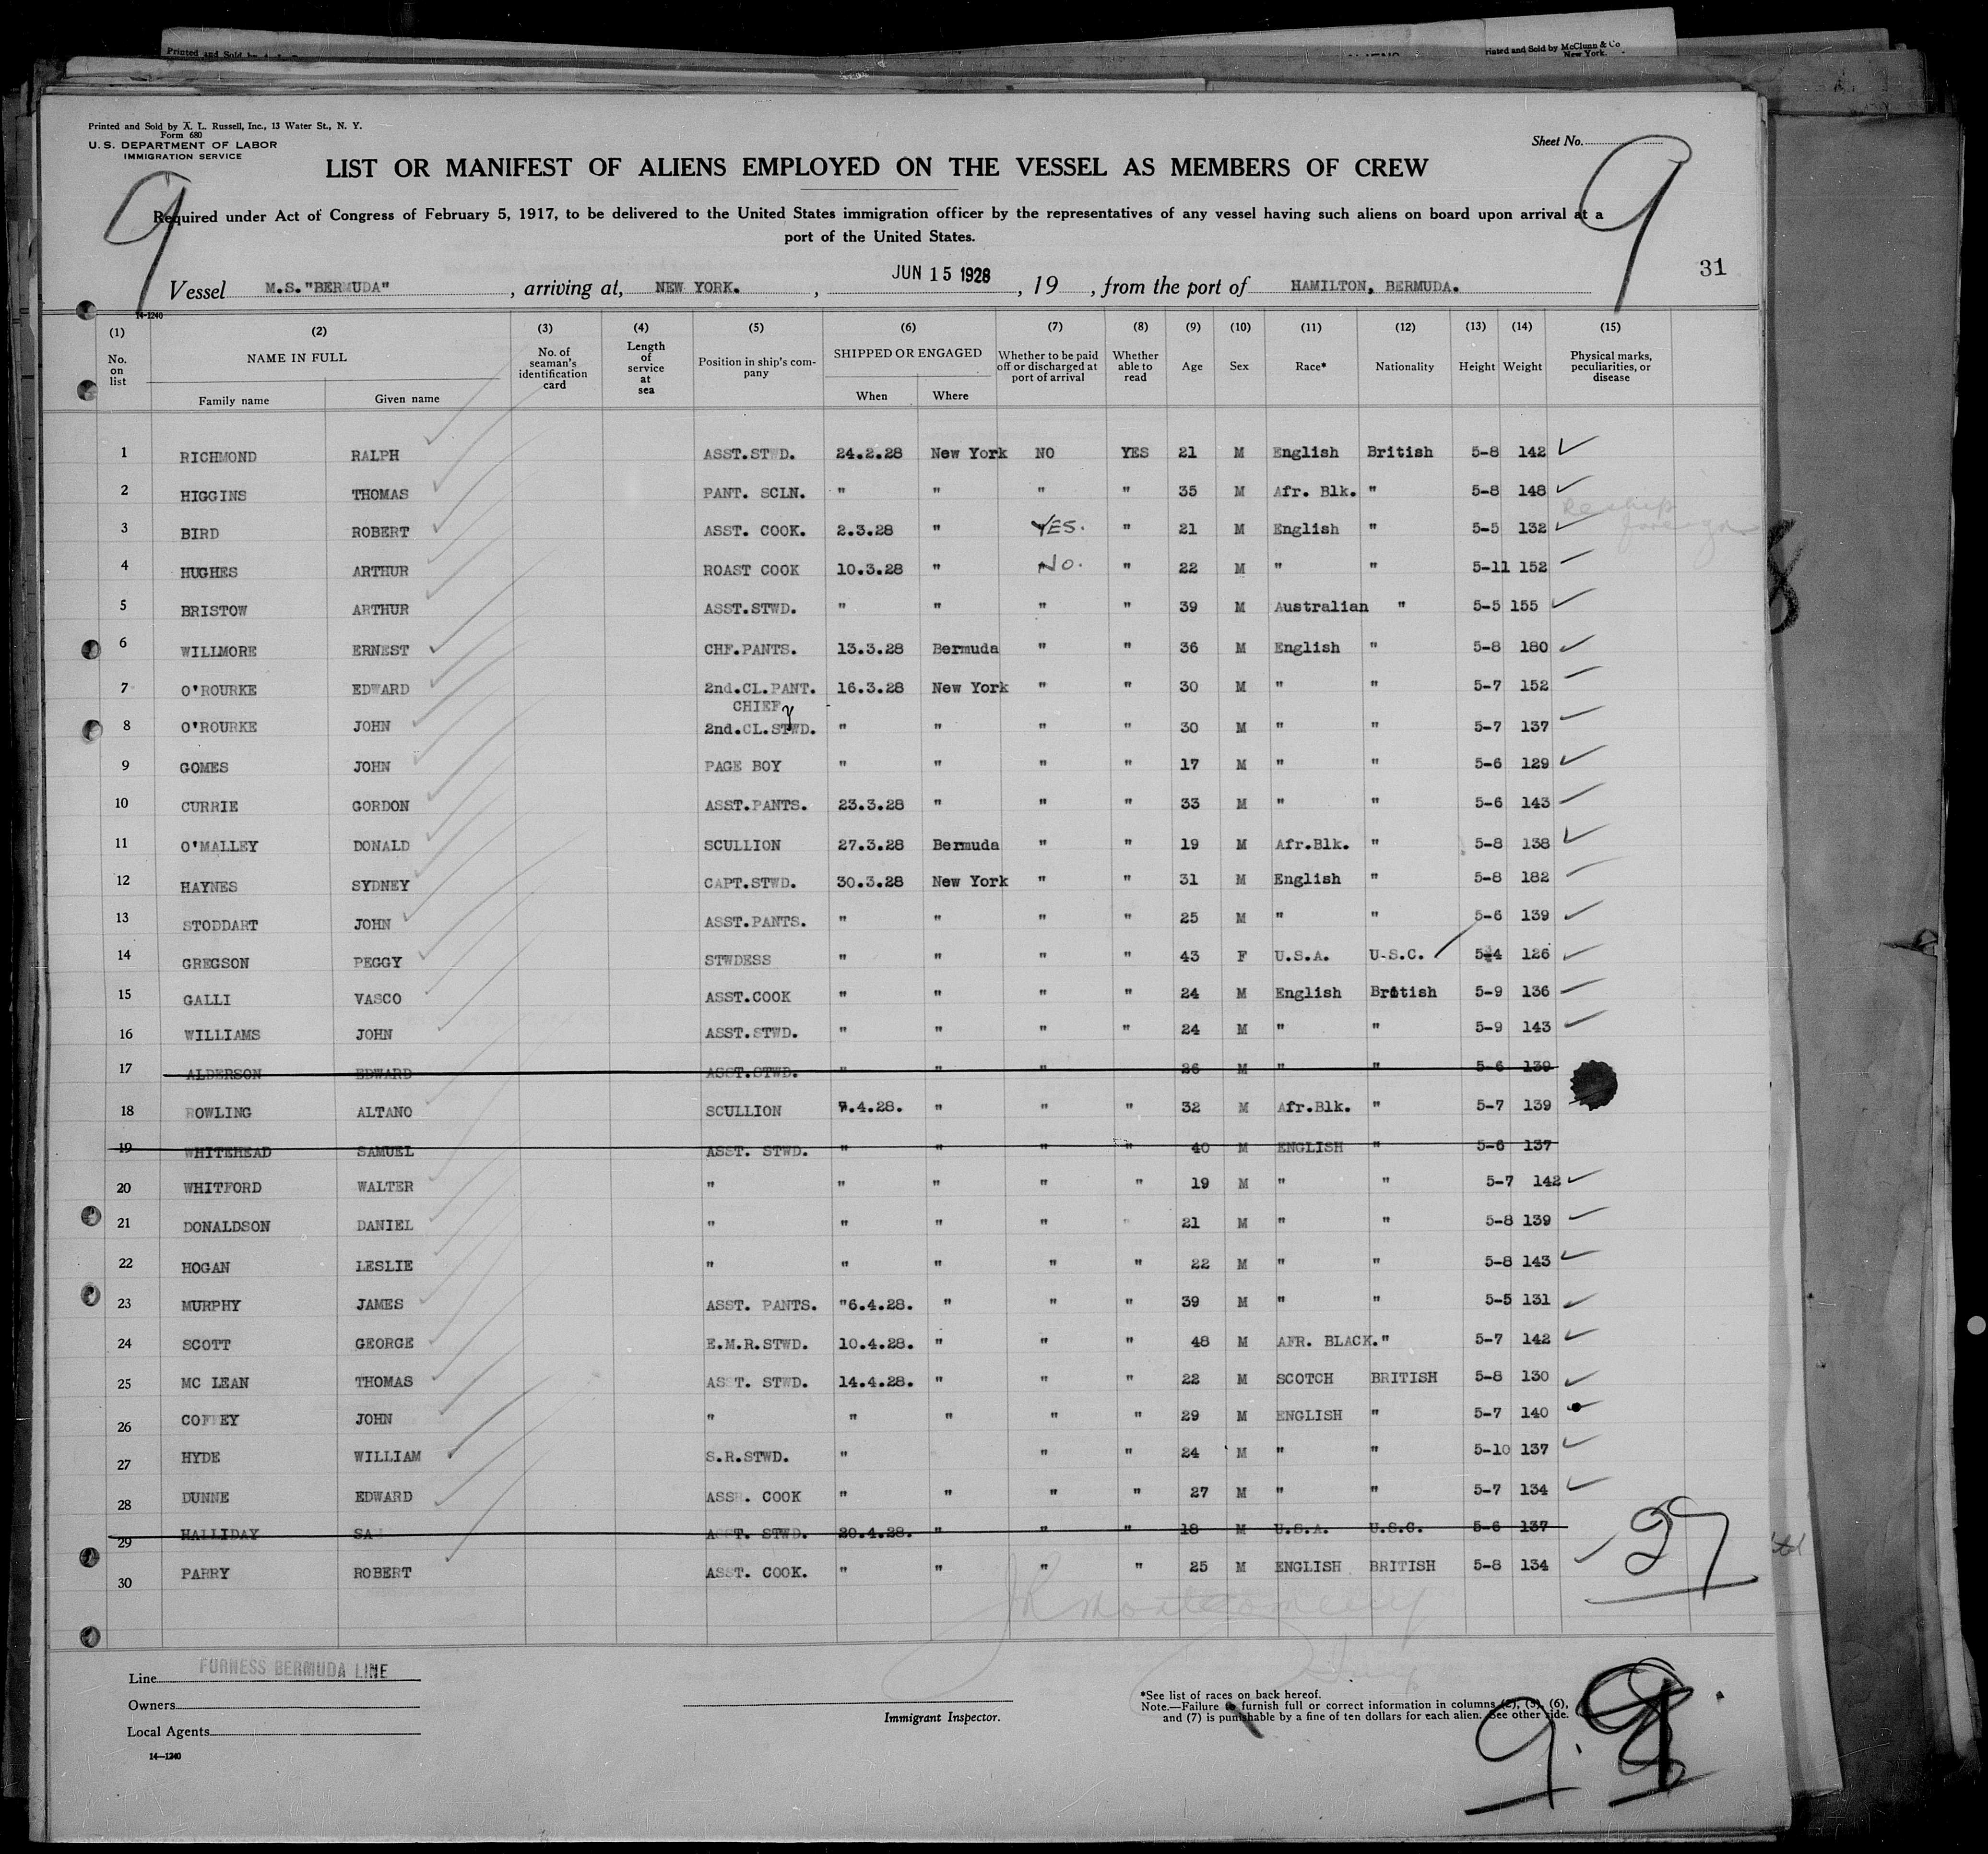 Printed and Sold by
Printed and Sold by McClunn & Co
New York.
Printed and Sold by A. L. Russell, Inc., 13 Water St., N. Y.
Form 680
U. S. DEPARTMENT OF LABOR
IMMIGRATION SERVICE
Sheet No.
LIST OR MANIFEST OF ALIENS EMPLOYED ON THE VESSEL AS MEMBERS OF CREW
9 9
Required under Act of Congress of February 5, 1917, to be delivered to the United States immigration officer by the representatives of any vessel having such aliens on board upon arrival at a
port of the United States.
31
Vessel M.S."BERMUDA" , arriving at, NEW YORK. , JUN 15 1928 , 19 , from the port of HAMILTON, BERMUDA.
14-1240
(1) (2) (3) (4) (5) (6) (7) (8) (9) (10) (11) (12) (13) (14) (15)
No. on list NAME IN FULL Family name Given name No. of seaman's identification card Length of service at sea Position in ship's company SHIPPED OR ENGAGED When Where Whether to be paid off or discharged at port of arrival Whether able to read Age Sex Race* Nationality Height Weight Physical marks, peculiarities, or disease
1 RICHMOND RALPH ASST.STWD. 24.2.28 New York NO YES 21 M English British 5-8 142
2 HIGGINS THOMAS PANT. SCLN. " " " " 35 M Afr. Blk. " 5-8 148
Reship foreign
3 BIRD ROBERT ASST. COOK. 2.3.28 " YES. " 21 M English " 5-5 132
4 HUGHES ARTHUR ROAST COOK 10.3.28 " No. " 22 M " " 5-11 152
5 BRISTOW ARTHUR ASST.STWD. " " " " 39 M Australian " 5-5 155
6 WILLMORE ERNEST CHF.PANTS. 13.3.28 Bermuda " " 36 M English " 5-8 180
7 O'ROURKE EDWARD 2nd.CL.PANT. 16.3.28 New York " " 30 M " " 5-7 152
CHIEF
8 O'ROURKE JOHN 2nd.CL.STWD. " " " " 30 M " " 5-7 137
9 GOMES JOHN PAGE BOY " " " " 17 M " " 5-6 129
10 CURRIE GORDON ASST.PANTS. 23.3.28 " " " 33 M " " 5-6 143
11 O'MALLEY DONALD SCULLION 27.3.28 Bermuda " " 19 M Afr.Blk. " 5-8 138
12 HAYNES SYDNEY CAPT.STWD. 30.3.28 New York " " 31 M English " 5-8 182
13 STODDART JOHN ASST.PANTS. " " " " 25 M " " 5-6 139
14 GREGSON PEGGY STWDESS " " " " 43 F U.S.A. U.S.C. 5-4 126
15 GALLI VASCO ASST.COOK " " " " 24 M English British 5-9 136
16 WILLIAMS JOHN ASST.STWD. " " " " 24 M " " 5-9 143
17 ALDERSON EDWARD ASST.STWD. " " " 26 M " " 5-6 139
18 ROWLING ALTANO SCULLION 7.4.28. " " " 32 M Afr.Blk. " 5-7 139
19 WHITEHEAD SAMUEL ASST. STWD. " " " " 40 M ENGLISH " 5-6 137
20 WHITFORD WALTER " " " " " 19 M " " 5-7 142
21 DONALDSON DANIEL " " " " " 21 M " " 5-8 139
22 HOGAN LESLIE " " " " " 22 M " " 5-8 143
23 MURPHY JAMES ASST. PANTS. "6.4.28. " " " 39 M " " 5-5 131
24 SCOTT GEORGE E.M.R.STWD. 10.4.28. " " " 48 M AFR. BLACK. " 5-7 142
25 MC LEAN THOMAS ASST. STWD. 14.4.28. " " " 22 M SCOTCH BRITISH 5-8 130
26 COFFEY JOHN " " " " " 29 M ENGLISH " 5-7 140
27 HYDE WILLIAM S.R.STWD. " " " 24 M " " 5-10 137
28 DUNNE EDWARD ASSR. COOK " " " " 27 M " " 5-7 134
29 HALLIDAY SA ASST. STWD. 20.4.28. " " " 18 M U.S.A. U.S.C. 5-6 137
27
30 PARRY ROBERT ASST. COOK. " " " " 25 M ENGLISH BRITISH 5-8 134
JR Montgomery
Line FURNESS BERMUDA LINE
Owners
Local Agents
14-1240
Immigrant Inspector.
*See list of races on back hereof.
Note.—Failure to furnish full or correct information in columns (2), (5), (6),
and (7) is punishable by a fine of ten dollars for each alien. See other side.
9.